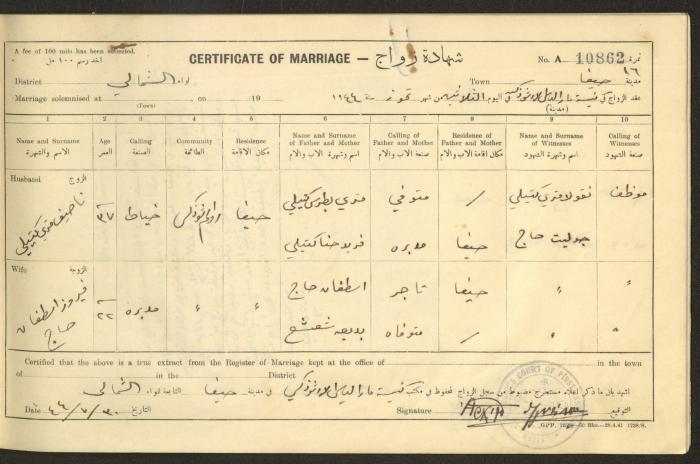 A fee of 100 mils has been collected.
اخذ رسم ١٠٠ مل
CERTIFICATE OF MARRIAGE — شهادة زواج
No. A 10862 نمرة
District لواء الشمالي Town مدينة حيفا
Marriage solemnised at on 19
(Town)
عقد الزواج في كنيسة مار الياس في اليوم من شهر تموز سنة ١٩٤٤
(مدينة)
1 2 3 4 5 6 7 8 9 10
Name and Surname Age Calling Community Residence Name and Surname of Father and Mother Calling of Father and Mother Residence of Father and Mother Name and Surname of Witnesses Calling of Witnesses
الاسم والشهرة العمر الصنعة الطائفة مكان الاقامة اسم وشهرة الاب والام صنعة الاب والام مكان اقامة الاب والام اسم وشهرة الشهود صنعة الشهود
Husband الزوج
ناصيف متري كتيلي ٣٧ خياط روم ارثوذكس حيفا متري بطرس كتيلي متوفي / نقولا متري كتيلي موظف
فريد حنا كتيلي مدبره حيفا جوليت حاج
Wife الزوجة
فيروز اسطفان حاج ٢٢ مدبره اسطفان حاج تاجر حيفا
بديعه شعشع متوفاه /
Certified that the above is a true extract from the Register of Marriage kept at the office of in the town
of in the District
اشهد بان ما ذكر اعلاه مستخرج مضبوط من سجل الزواج المحفوظ في مكتب كنيسة مار الياس في مدينة حيفا التابعة للواء الشمالي
Date التاريخ Signature التوقيع
G.P.P.